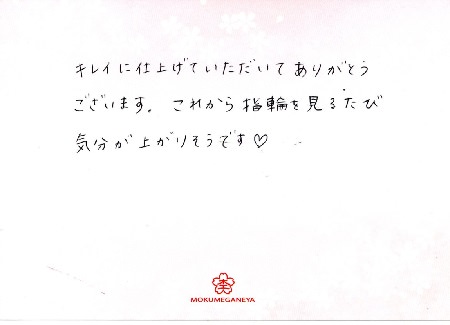 キレイに仕上げていただいてありがとう
ございます。これから指輪を見るたび
気分が上がりそうです♡
杢
MOKUMEGANEYA